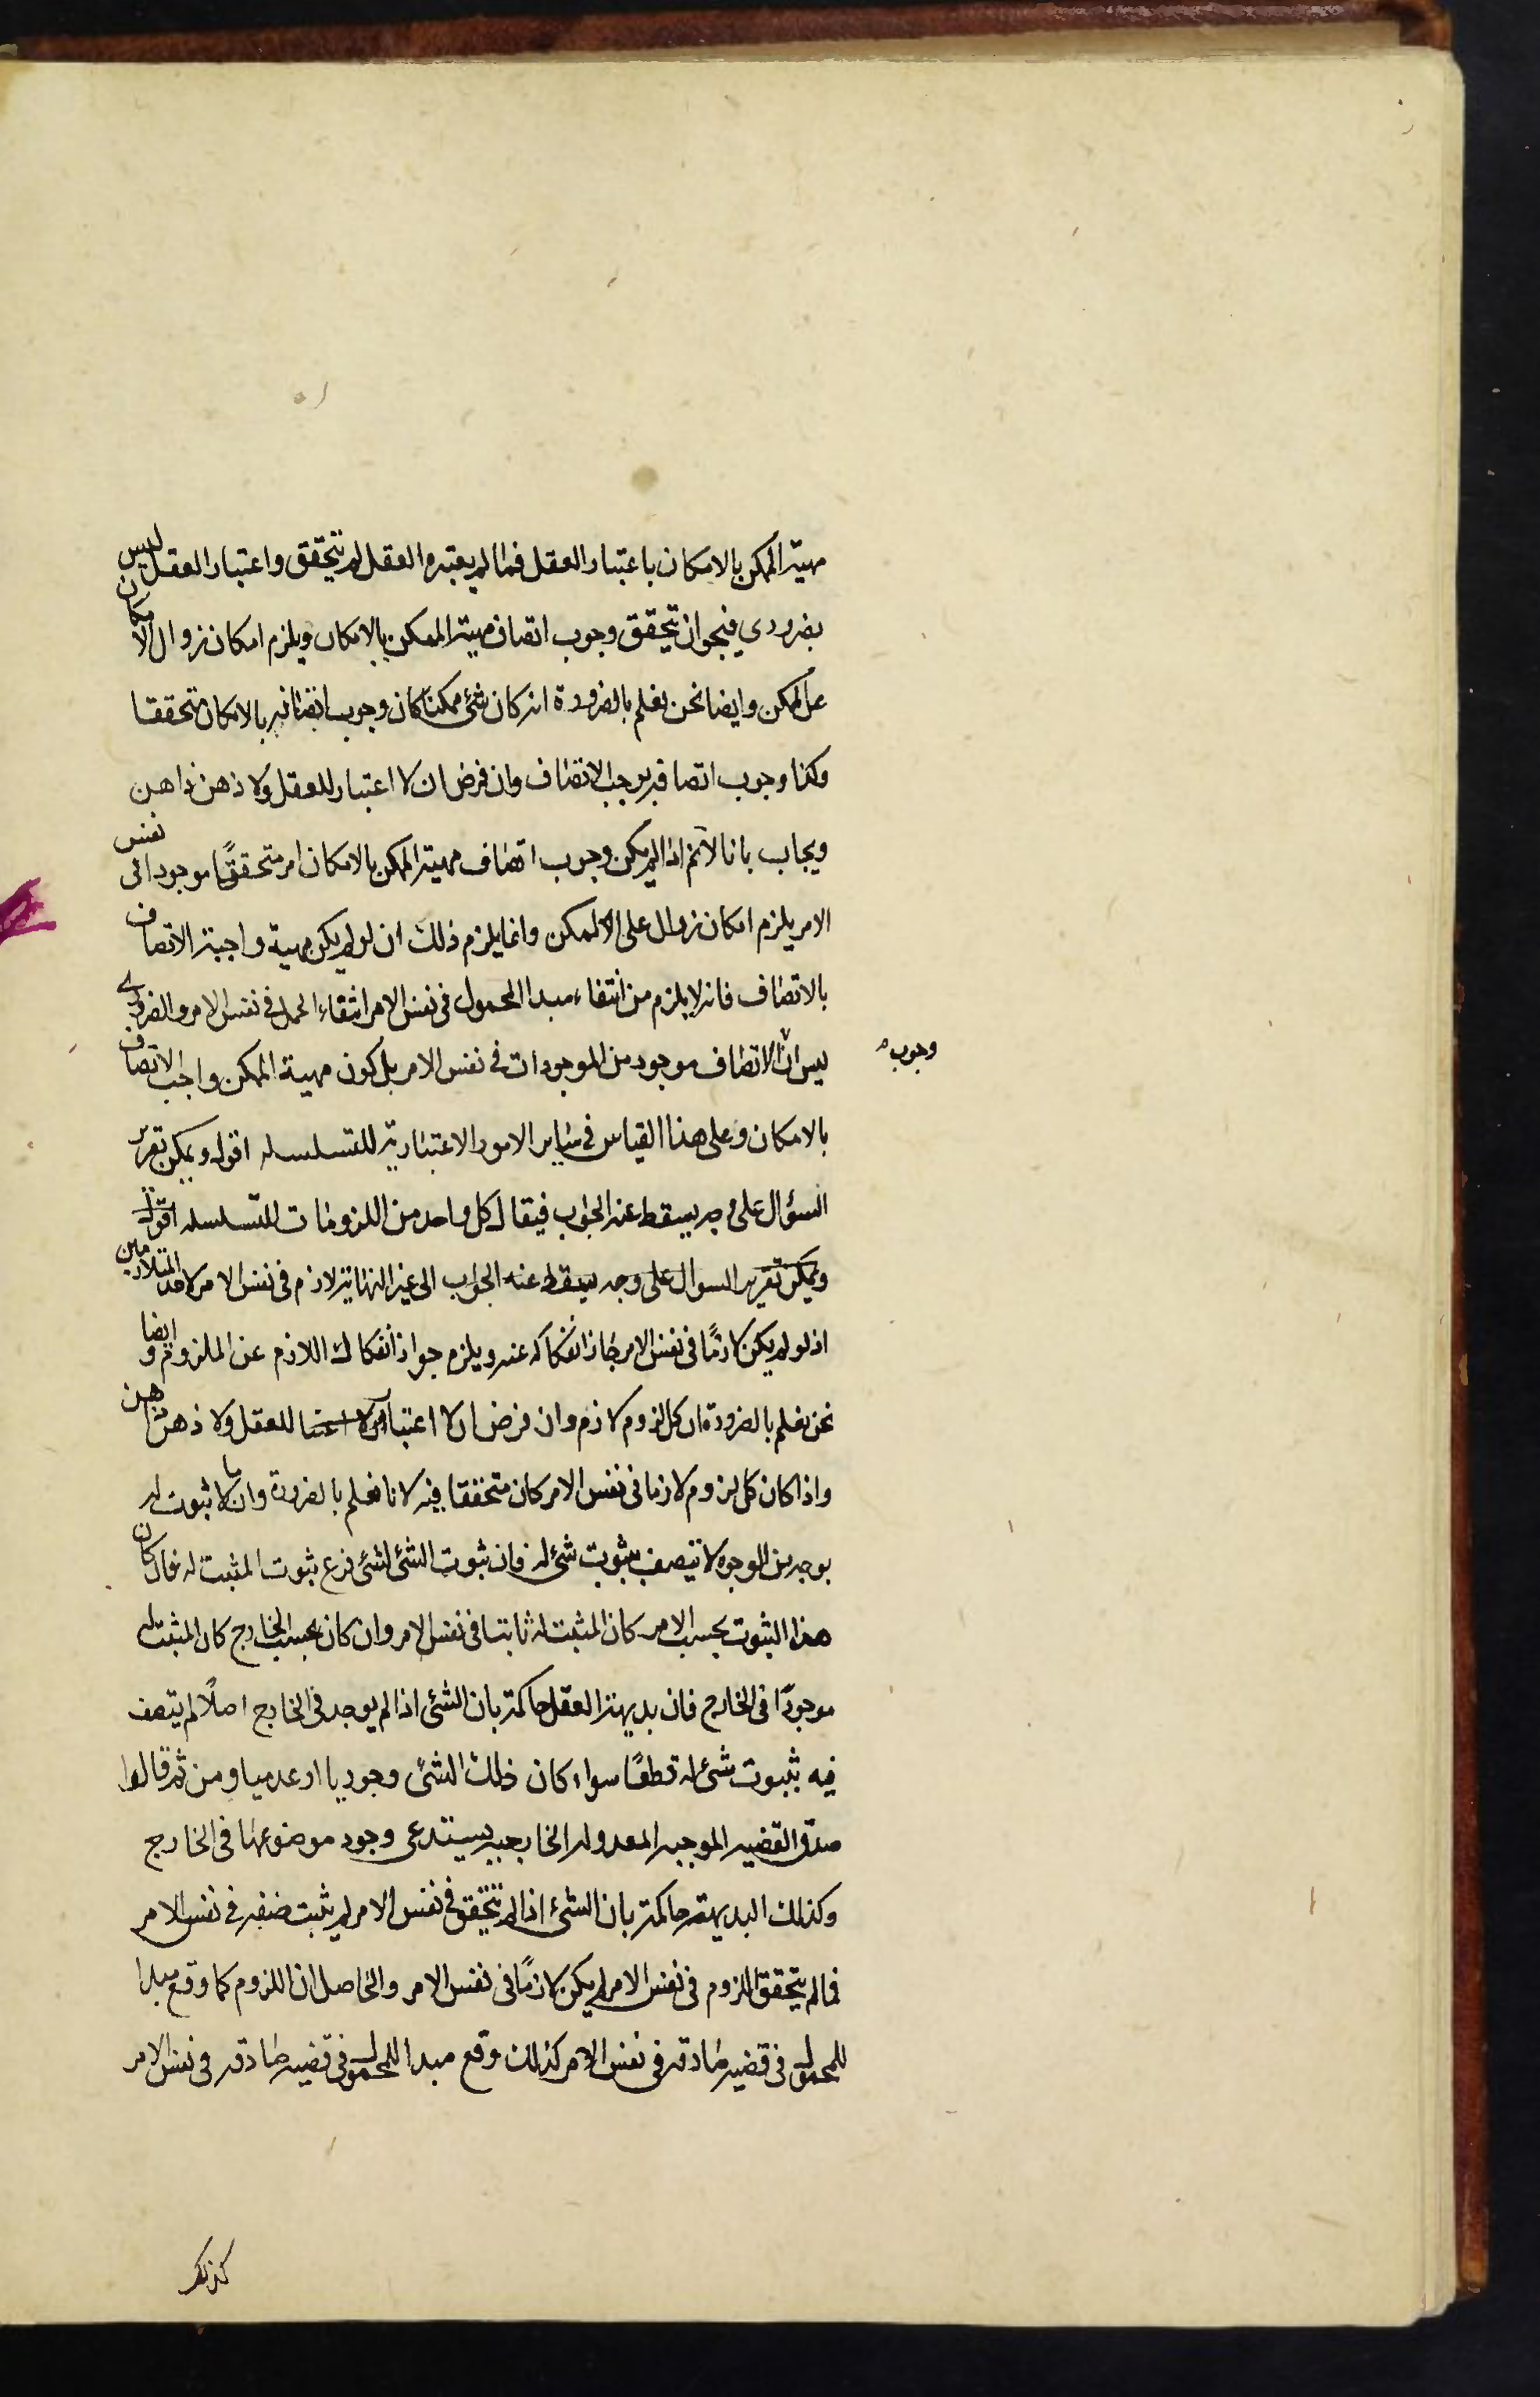 مهية الممكن بالامكان باعتبار العقل فما لم يعتبره العقل لم يتحقق واعتبار العقل ليس
بضروري فيجوز ان يتحقق وجوب اتصاف مهية الممكن بالامكان ويلزم امكان زوال الامكان
عن الممكن وايضا نحن نعلم بالضرورة انه كان شئ ممكنا كان وجوب اتصافه بالامكان متحققا
وكذا وجوب اتصافه بوجب الاتصاف وان فرض ان لا اعتبار للعقل ولا ذهن ذاهن
ويجاب بانا لانم اذا لم يكن وجوب اتصاف مهية الممكن بالامكان امر متحققًا موجودا فى نفس
الامر يلزم امكان زوال على الممكن وانما يلزم ذلك ان لو لم يكن مهية واجبة الاتصاف
بالاتصاف فانه لا يلزم من انتفاء مبدا المحمول فى نفس الامر انتفاء الحمل فى نفس الامر والضرورى
ليس ان الاتصاف موجود من الموجودات فى نفس الامر بل كون مهية الممكن واجب الاتصاف
وجوب
بالامكان وعلى هذا القياس فى ساير الامور الاعتبارية المتسلسله اقول ويمكن تقرير
السؤال على وجه يسقط عنه الجواب فيقال كل واحد من اللزومات المتسلسله اقول
ويمكن تقرير السوال على وجه يسقط عنه الجواب الى غير النهاية لازم فى نفس الامر لاحد المتلازمين
اذ لو لم يكن لازمًا فى نفس الامر جاز انفكاكه عنه ويلزم جواز انفكاك اللازم عن الملزوم وايضا
نحن نعلم بالضرورة ان كل لزوم لازم وان فرض ان لا اعتبار للعقل ولا ذهن ذاهن
واذا كان كل لزوم لازما فى نفس الامر كان متحققا فيه لانا نعلم بالضرورة وان ما لا ثبوت له
بوجه من الوجوه لا يتصف بثبوت شئ له فان ثبوت الشئ لشئ فرع ثبوت المثبت له فان كان
هذا الثبوت بحسب الامر كان المثبت له ثابتا فى نفس الامر وان كان بحسب الخارج كان المثبت له
موجودًا فى الخارج فان بديهة العقل حاكمة بان الشئ اذا لم يوجد فى الخارج اصلًا لم يتصف
فيه بثبوت شئ له قطعًا سواء كان ذلك الشئ وجوديا او عدميا ومن ثم قالوا
صدق القضيه الموجبه المعدوله الخارجيه يستدعى وجود موضوعها فى الخارج
وكذلك البديهة حاكمة بان الشئ اذا لم يتحقق فى نفس الامر لم يثبت صفه فى نفس الامر
فما لم يتحقق اللزوم فى نفس الامر لم يكن لازمًا فى نفس الامر والحاصل ان اللزوم كما وقع مبدا
للمحمول فى قضيه صادقه فى نفس الامر كذلك وقع مبدا للمحمول فى قضيه صادقه فى نفس الامر
كذلك